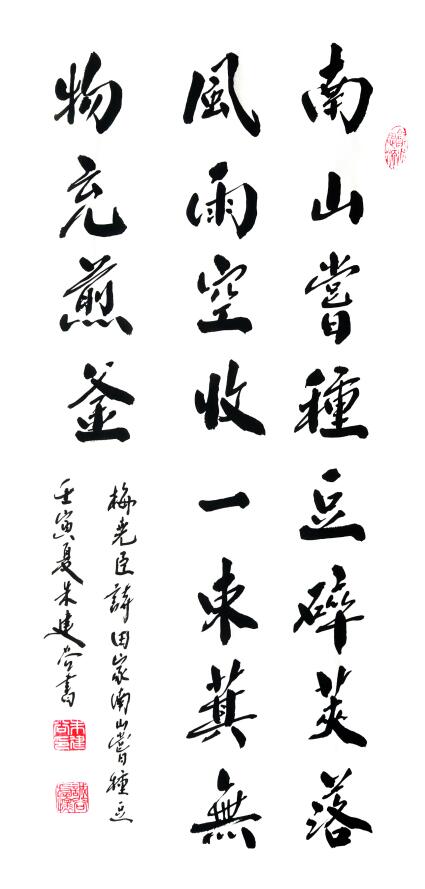 南山嘗種豆碎莢落
風雨空收一束萁無
物充煎釜
梅堯臣詩田家南山嘗種豆
壬寅夏朱建谷書